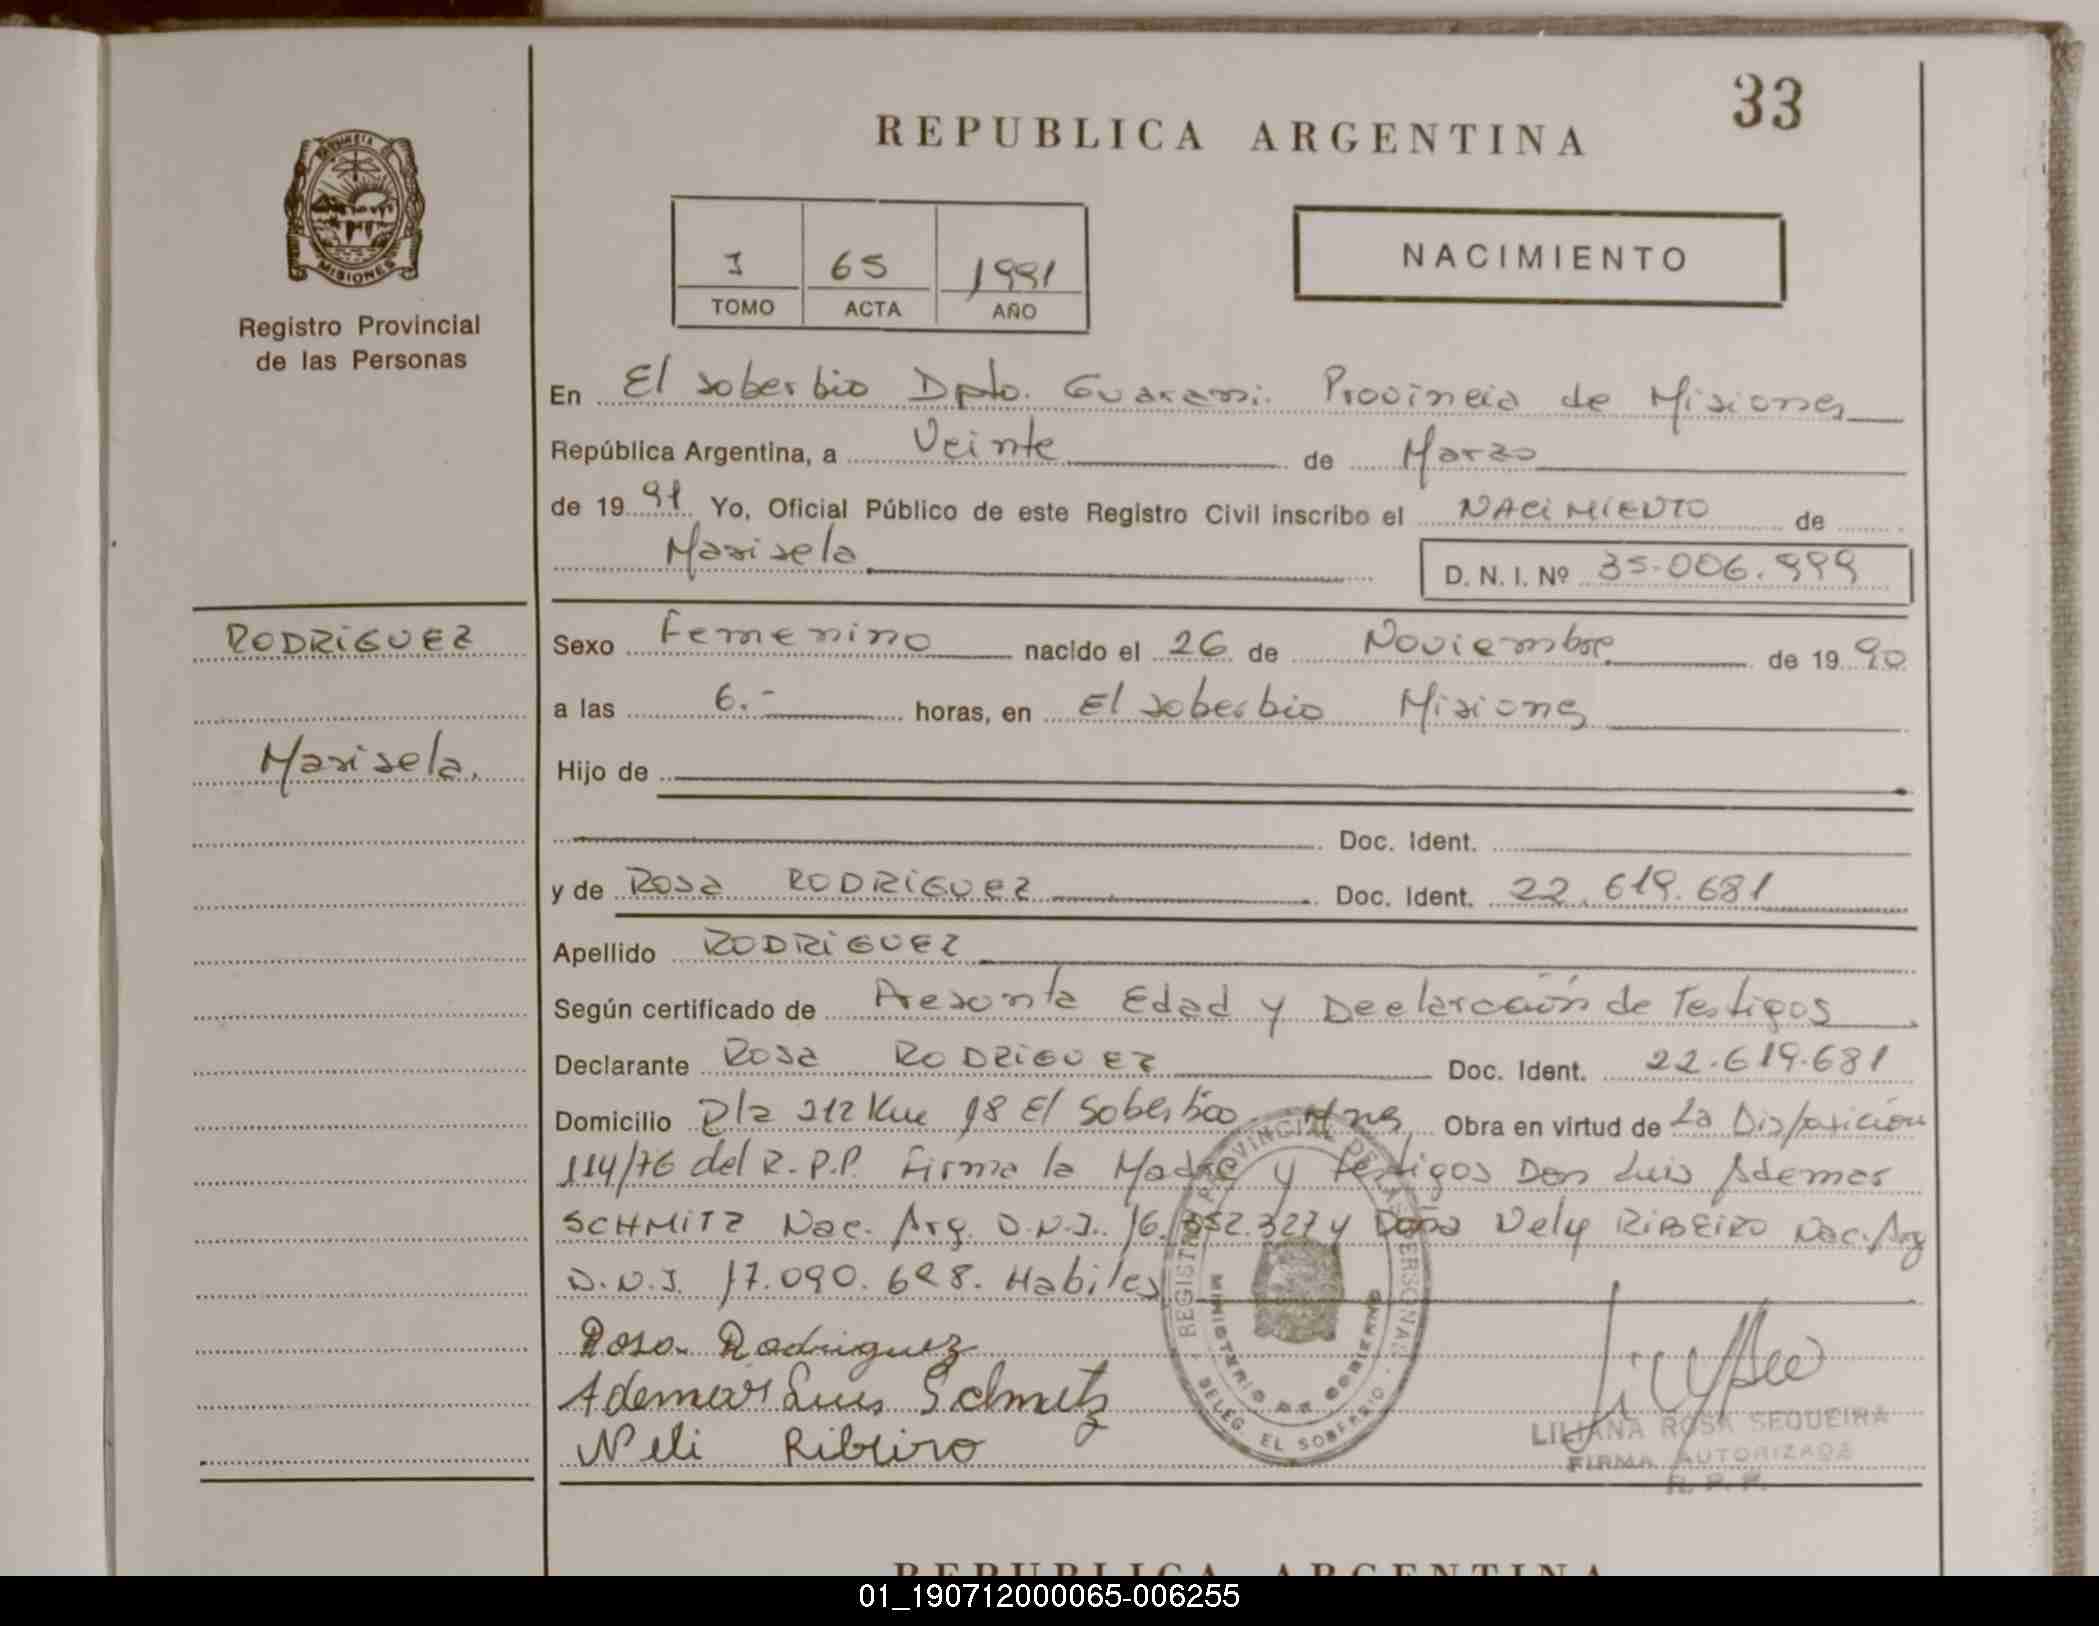 33
REPUBLICA ARGENTINA
PROVINCIA
MISIONES
Registro Provincial
de las Personas
NACIMIENTO
I 65 1991
TOMO ACTA AÑO
En El Soberbio Dpto. Guarani. Provincia de Misiones
República Argentina, a Veinte de Marzo
de 1991 Yo, Oficial Público de este Registro Civil inscribo el NACIMIENTO de
Marisela
D. N. I. Nº 35.006.999
RODRIGUEZ
Marisela.
Sexo Femenino nacido el 26 de Noviembre de 1990
a las 6.- horas, en El Soberbio Misiones
Hijo de
Doc. Ident.
y de Rosa RODRIGUEZ Doc. Ident. 22.619.681
Apellido RODRIGUEZ
Según certificado de Presunta Edad y Declaración de Testigos
Declarante Rosa RODRIGUEZ Doc. Ident. 22.619.681
Domicilio 212 18 El Soberbio Mnes, Obra en virtud de La Disposición
114/76 del R.P.P. Firma la Madre y Testigos Don Luis Ademar
SCHMITZ Nac. Arg. D.N.I. 16.352.327 y Doña Nely RIBEIRO Nac. Arg
D.N.I. 17.090.628. Habiles
Rosa Rodriguez
Ademar Luis Schmitz
Neli Ribeiro
REGISTRO PROVINCIAL DE LAS PERSONAS
MINISTERIO DE GOBIERNO
DELEG. EL SOBERBIO
LILIANA ROSA SEQUEIRA
FIRMA AUTORIZADA
R. P. P.
REPUBLICA ARGENTINA
01_190712000065-006255